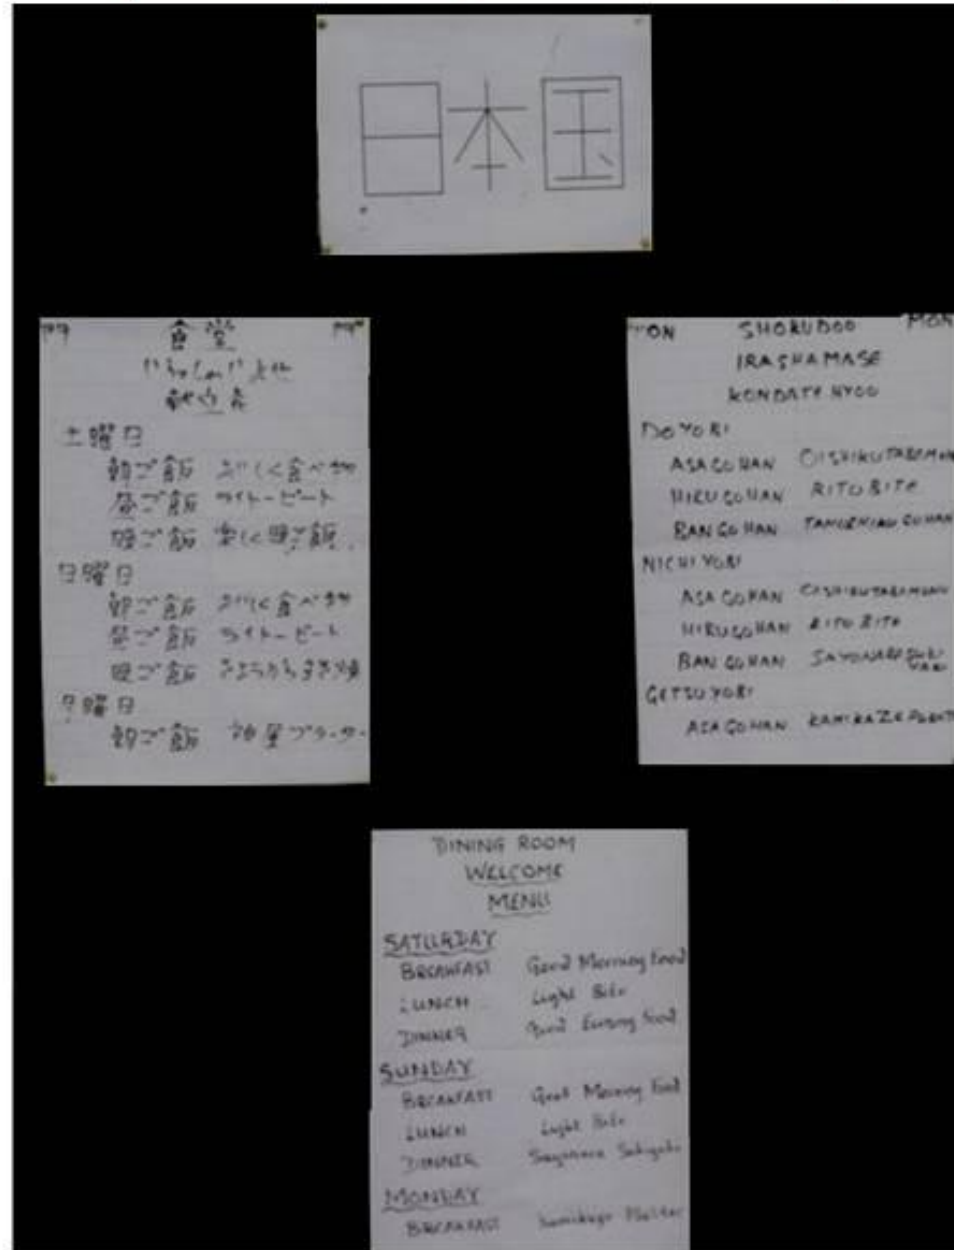 日本国
食堂
献立表
土曜日
朝ご飯 おいしく食べ物
昼ご飯 ライトービート
晩ご飯 楽しく晩ご飯
日曜日
朝ご飯 おいしく食べ物
昼ご飯 ライトービート
晩ご飯 さようならすき焼
月曜日
朝ご飯
MON SHOKUDOO MON
IRASHAMASE
KONDATE HYOO
DOYOBI
ASA GOHAN OISHIKUTABEMONO
HIRU GOHAN RITO BITE
BAN GOHAN
NICHIYOBI
ASA GOHAN OISHIKUTABEMONO
HIRU GOHAN RITO BITE
BAN GOHAN SAYONARA SUKI
YAKI
GETSUYOBI
ASA GOHAN KAMIKAZE
DINING ROOM
WELCOME
MENU
SATURDAY
BREAKFAST Good Morning Food
LUNCH Light Bite
DINNER Good Evening Food
SUNDAY
BREAKFAST Good Morning Food
LUNCH Light Bite
DINNER Sayonara Sukiyaki
MONDAY
BREAKFAST Kamikaze Platter